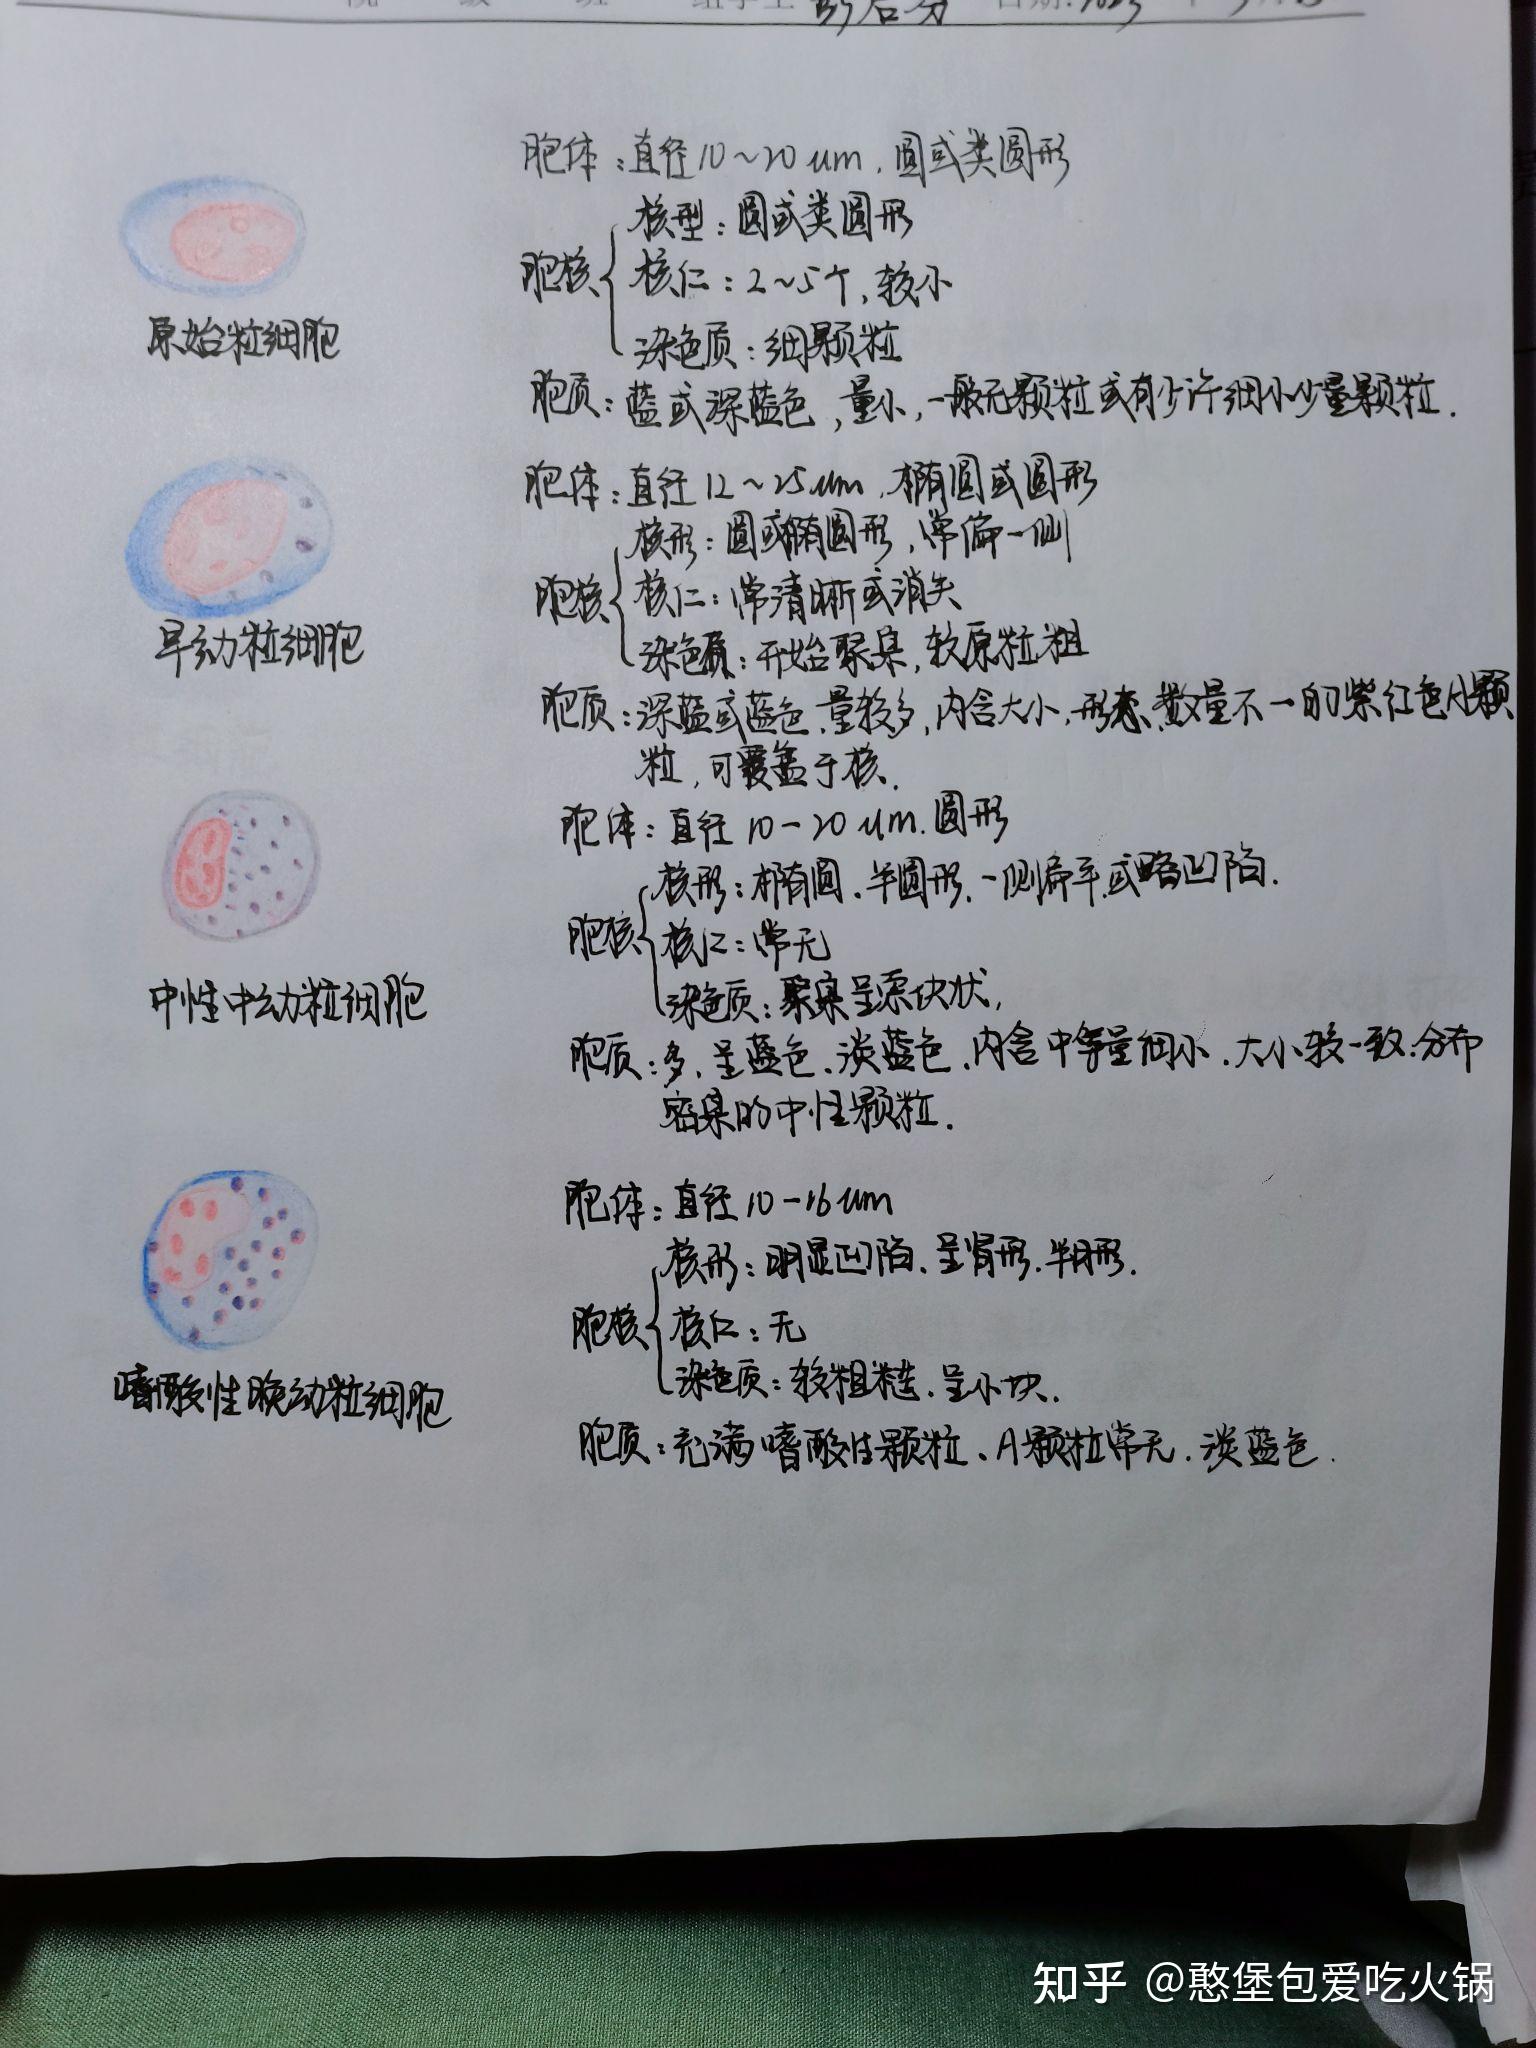 院 级 班 组学生 日期:2023 年
胞体：直径10～20um，圆或类圆形
核型：圆或类圆形
胞核
核仁：2～5个，较小
染色质：细颗粒
原始粒细胞
胞质：蓝或深蓝色，量小，一般无颗粒或有少许细小少量颗粒.
胞体：直径12～25um，椭圆或圆形
核形：圆或椭圆形，常偏一侧
胞核
核仁：常清晰或消失
染色质：开始聚集，较原粒粗
早幼粒细胞
胞质：深蓝或蓝色、量较多，内含大小，形态、数量不一的紫红色A颗
粒，可覆盖于核.
胞体：直径10-20um.圆形
核形：椭圆、半圆形，一侧扁平或略凹陷.
胞核
核仁：常无
染色质：聚集呈索块状，
中性中幼粒细胞
胞质：多、呈蓝色、淡蓝色、内含中等量细小、大小较一致、分布
密集的中性颗粒.
胞体：直径10-16um
核形：明显凹陷、呈肾形、半月形.
胞核
核仁：无
染色质：较粗糙、呈小块.
嗜酸性晚幼粒细胞
胞质：充满嗜酸性颗粒、A颗粒常无.淡蓝色.
知乎 @憨堡包爱吃火锅